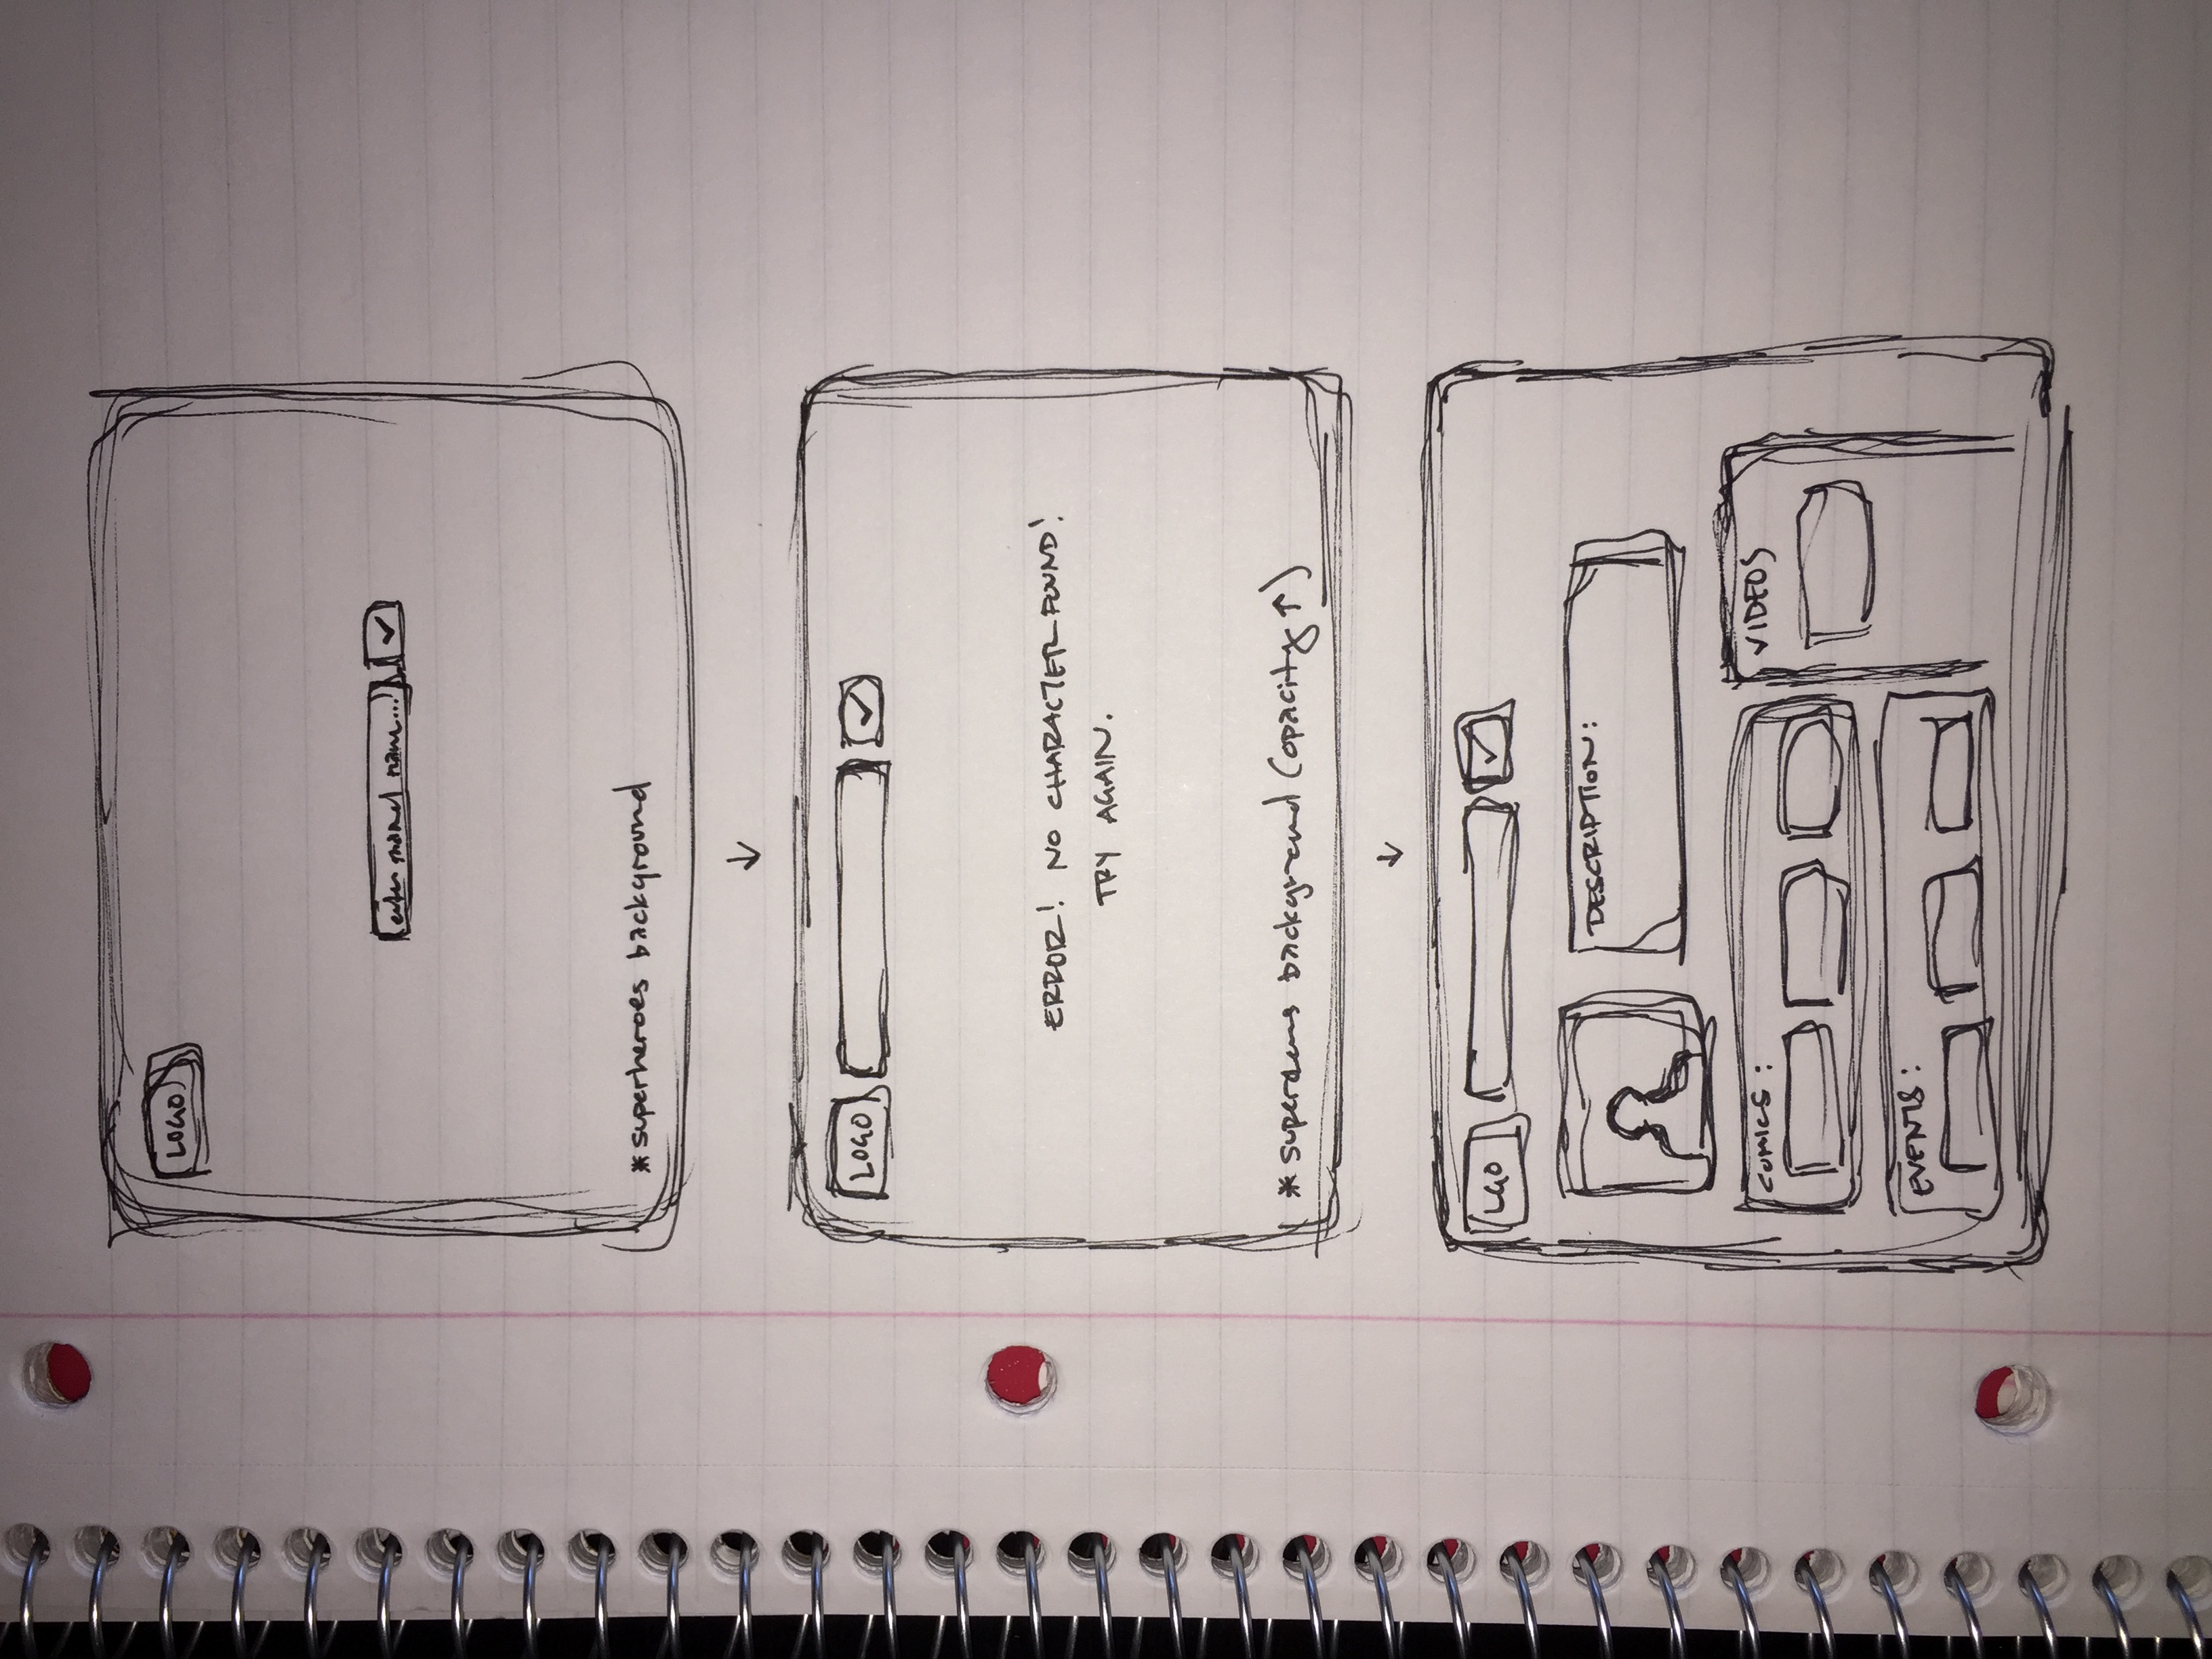 LOGO
enter marvel name...
*superheroes background
LOGO
ERROR! NO CHARACTER FOUND!
TRY AGAIN.
* background (opacity ↑)
LGO
DESCRIPTION:
COMICS:
VIDEOS
EVENTS: